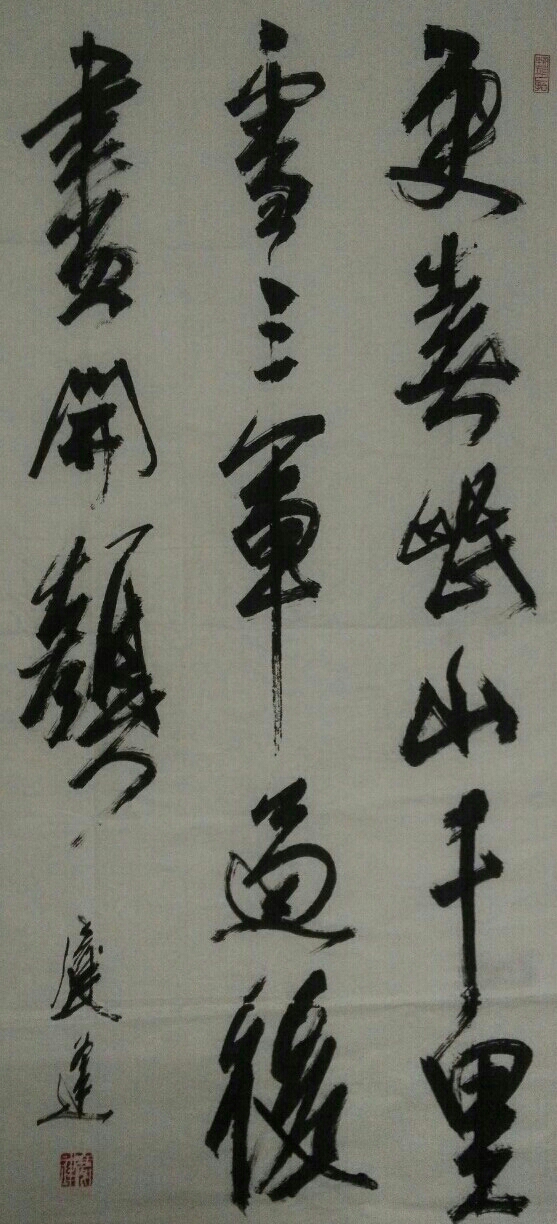 更喜岷山千里
雪三軍過後
盡開顏
慶蓮